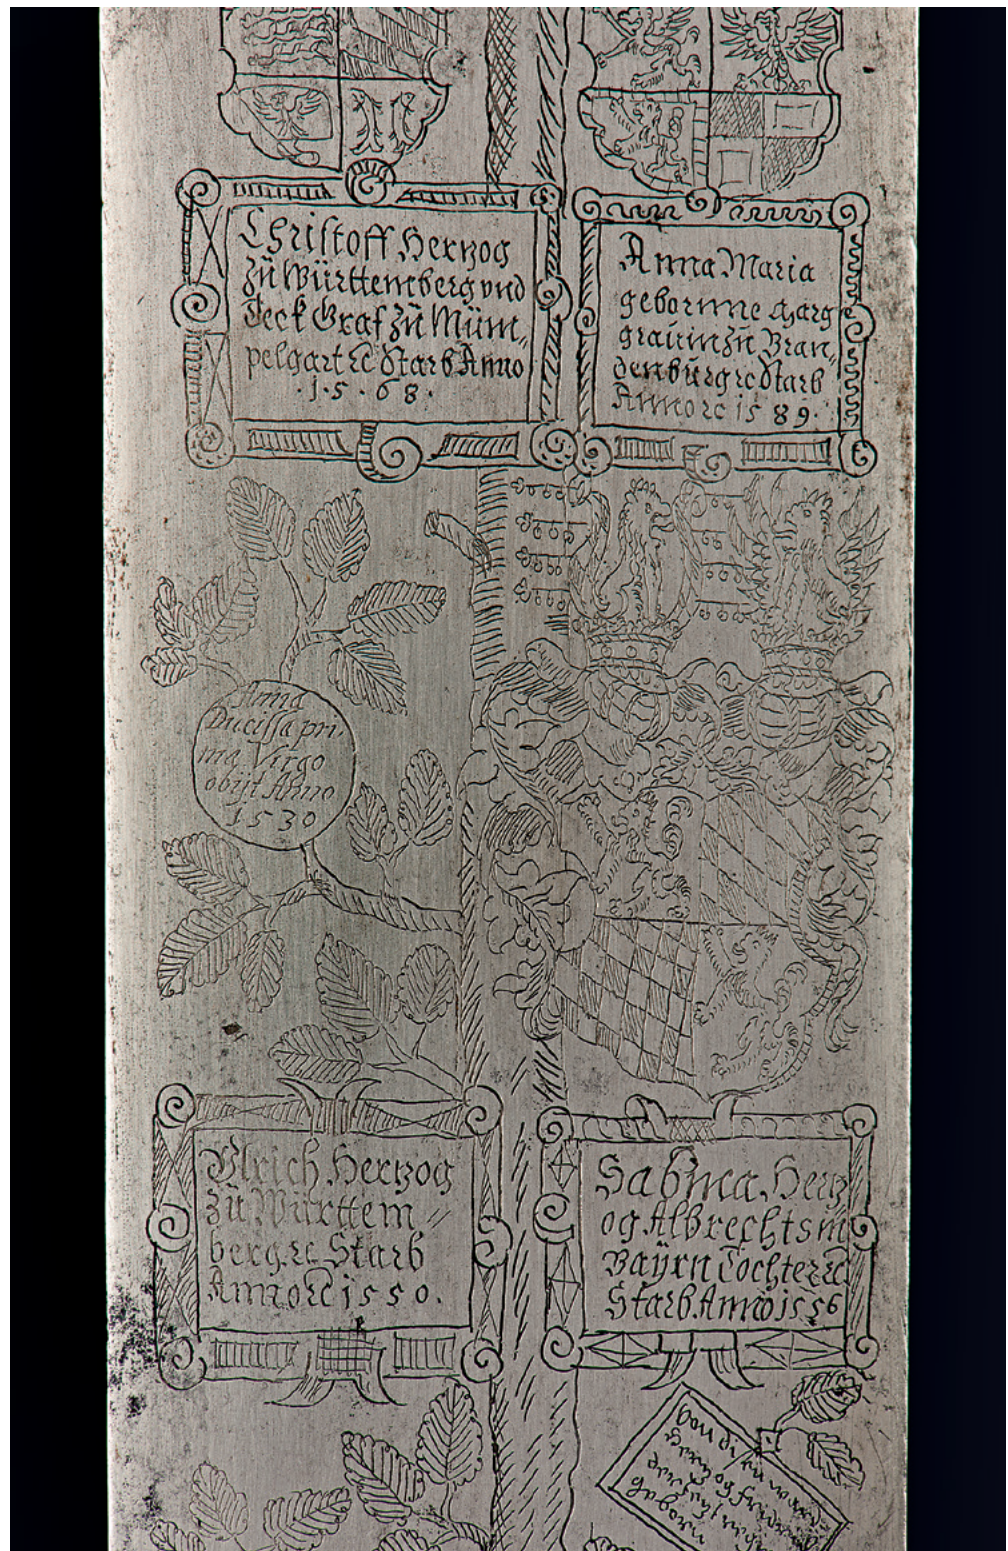 Christoff Herzog
zu Württemberg vnd
Teck Graf zu Müm„
pelgart ꝛc Starb Anno
·1·5·68·
Anna Maria
gebornne Marg
grauin zu Bran„
denburg ꝛc Starb
Anno ꝛc 1589.
Anna
Ducissa pri
ma Virgo
obijt Anno
1530
Vlrich Herzog
zu Württem„
berg ꝛc Starb
Anno ꝛc 1550.
Sabina Hertz
og Albrechts in
Bayrn Tochter ꝛc
Starb. Anno 1556
Von di en ward
Hertzog
geborn